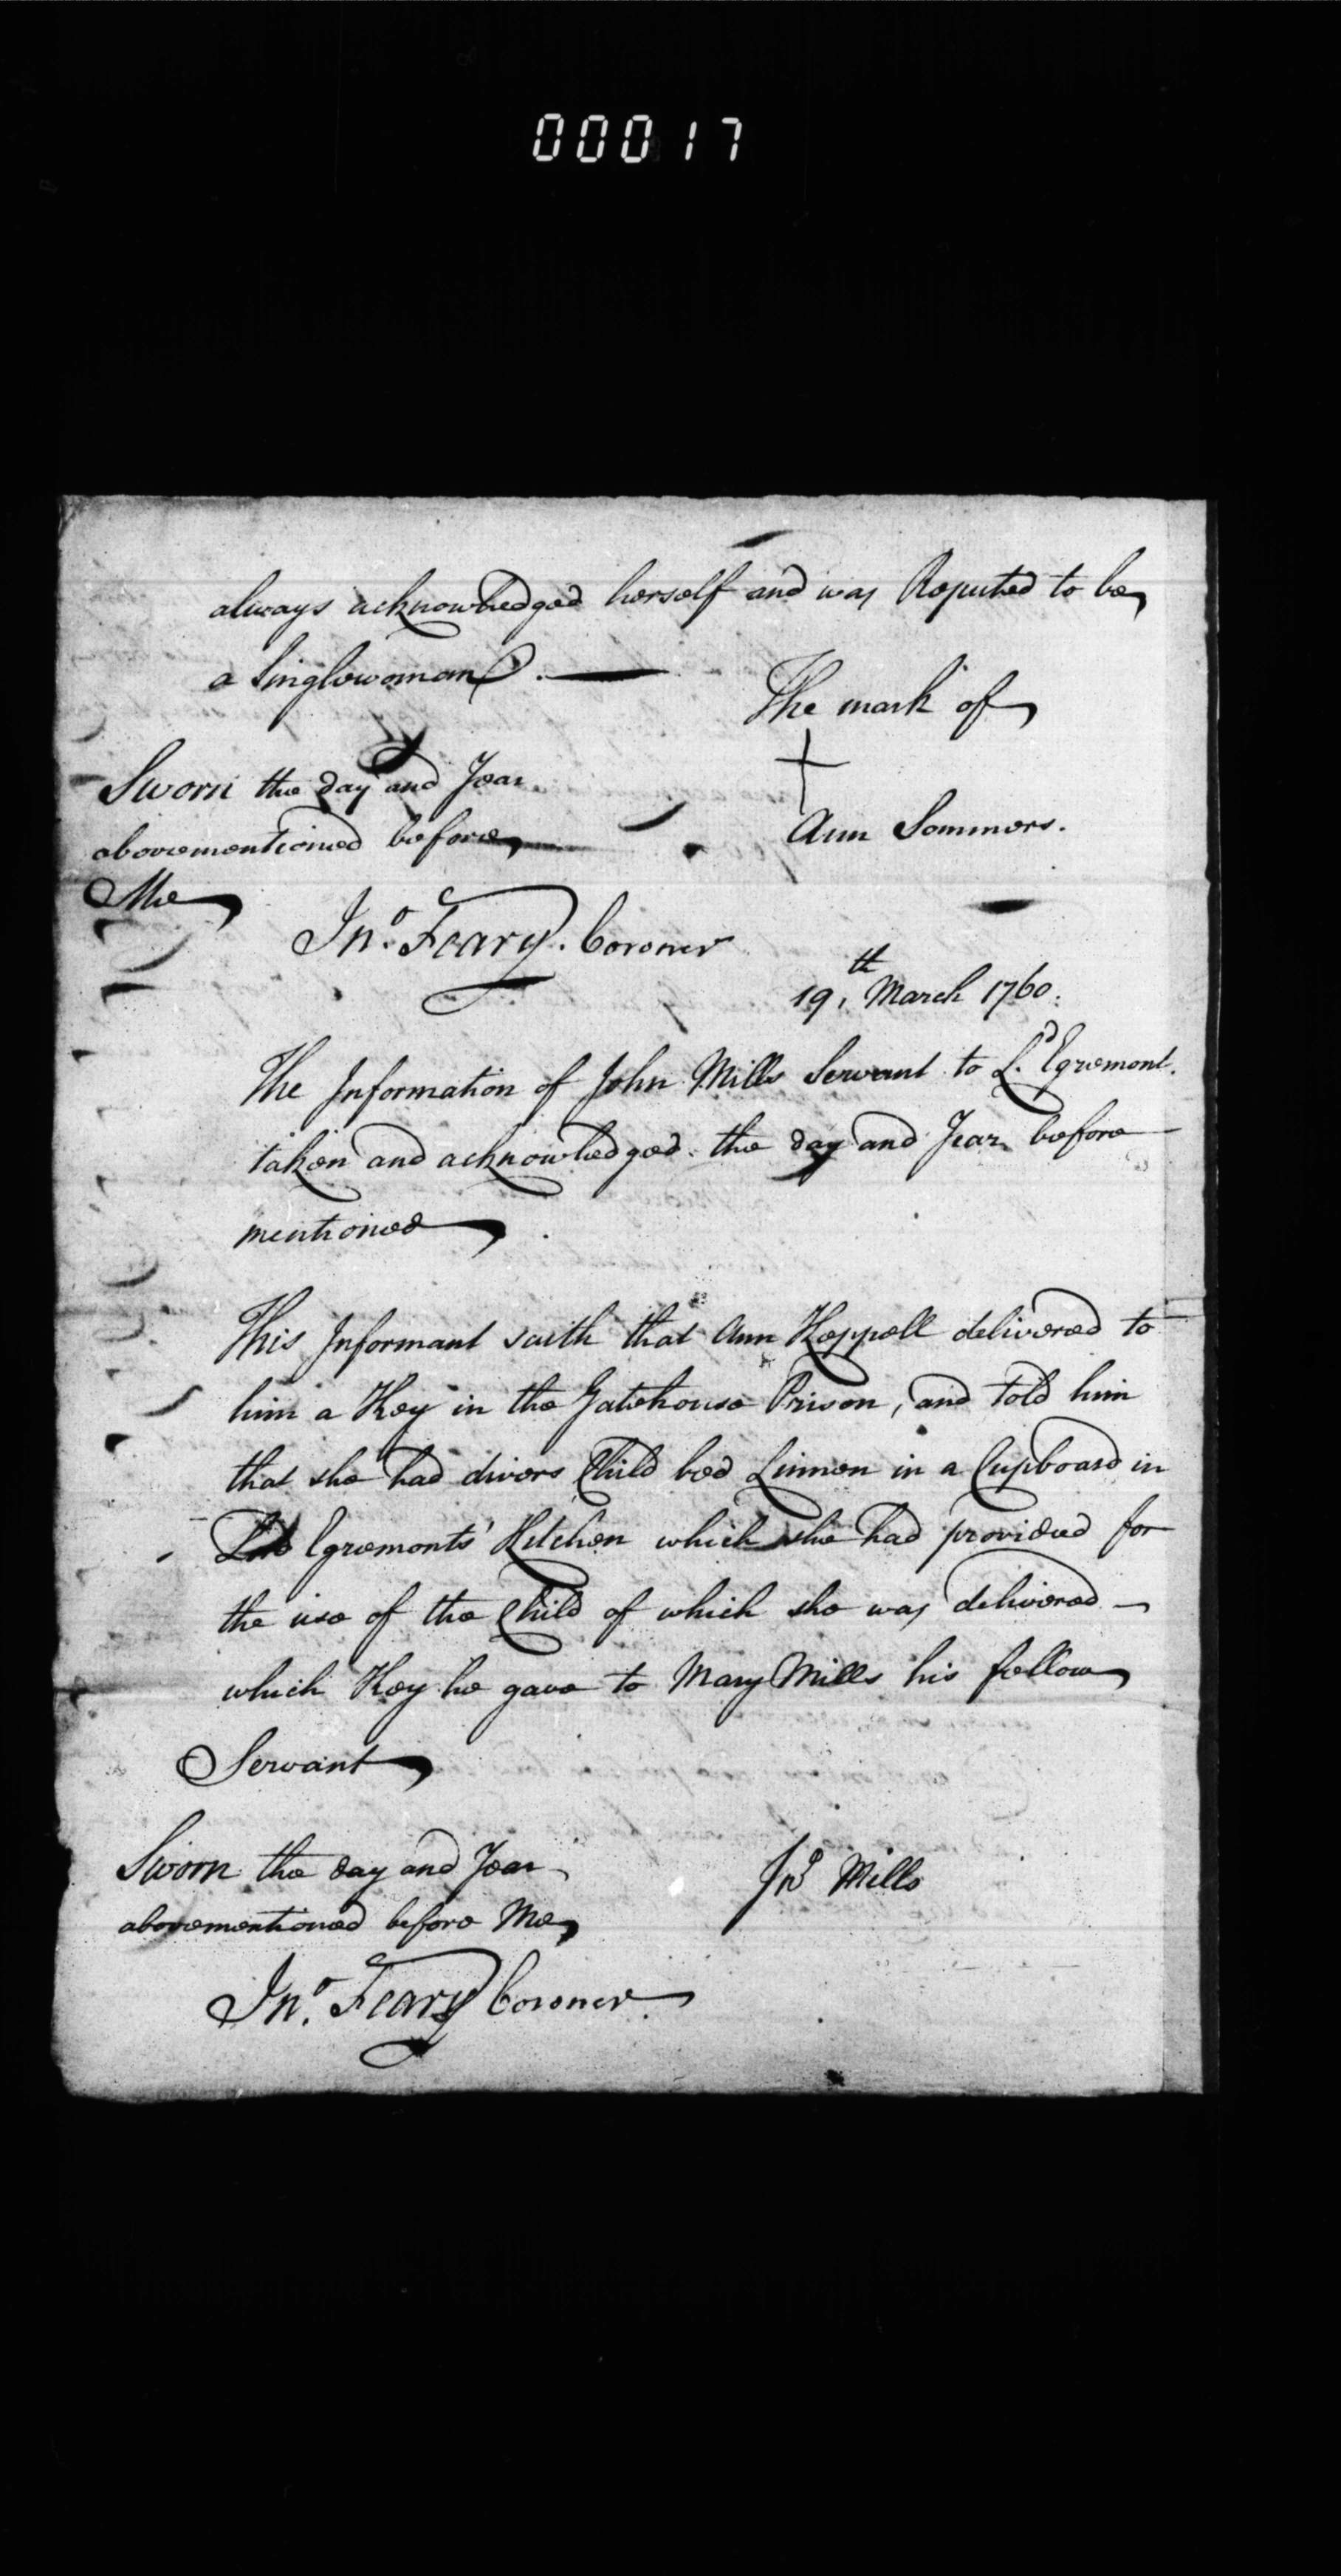 00017
always acknowledged herself and was Reputed to be
a Singlewoman. —
The mark of
+
Ann Sommers.
Sworn the day and Year
abovementioned before
Me
Jno. Feary. Coroner
19th. March 1760.
The Information of John Mills Servant to Ld. Egremont.
taken and acknowledged the day and Year before
mentioned
This Informant saith that Ann Keppell delivered to
him a Key in the Gatehouse Prison, and told him
that she had divers Child bed Linnen in a Cupboard in
Lord Egremonts' Kitchen which she had provided for
the use of the Child of which she was delivered —
which Key he gave to Mary Mills his fellow
Servant
Sworn the day and Year
abovementioned before Me
Jno Mills
Jno. Feary Coroner